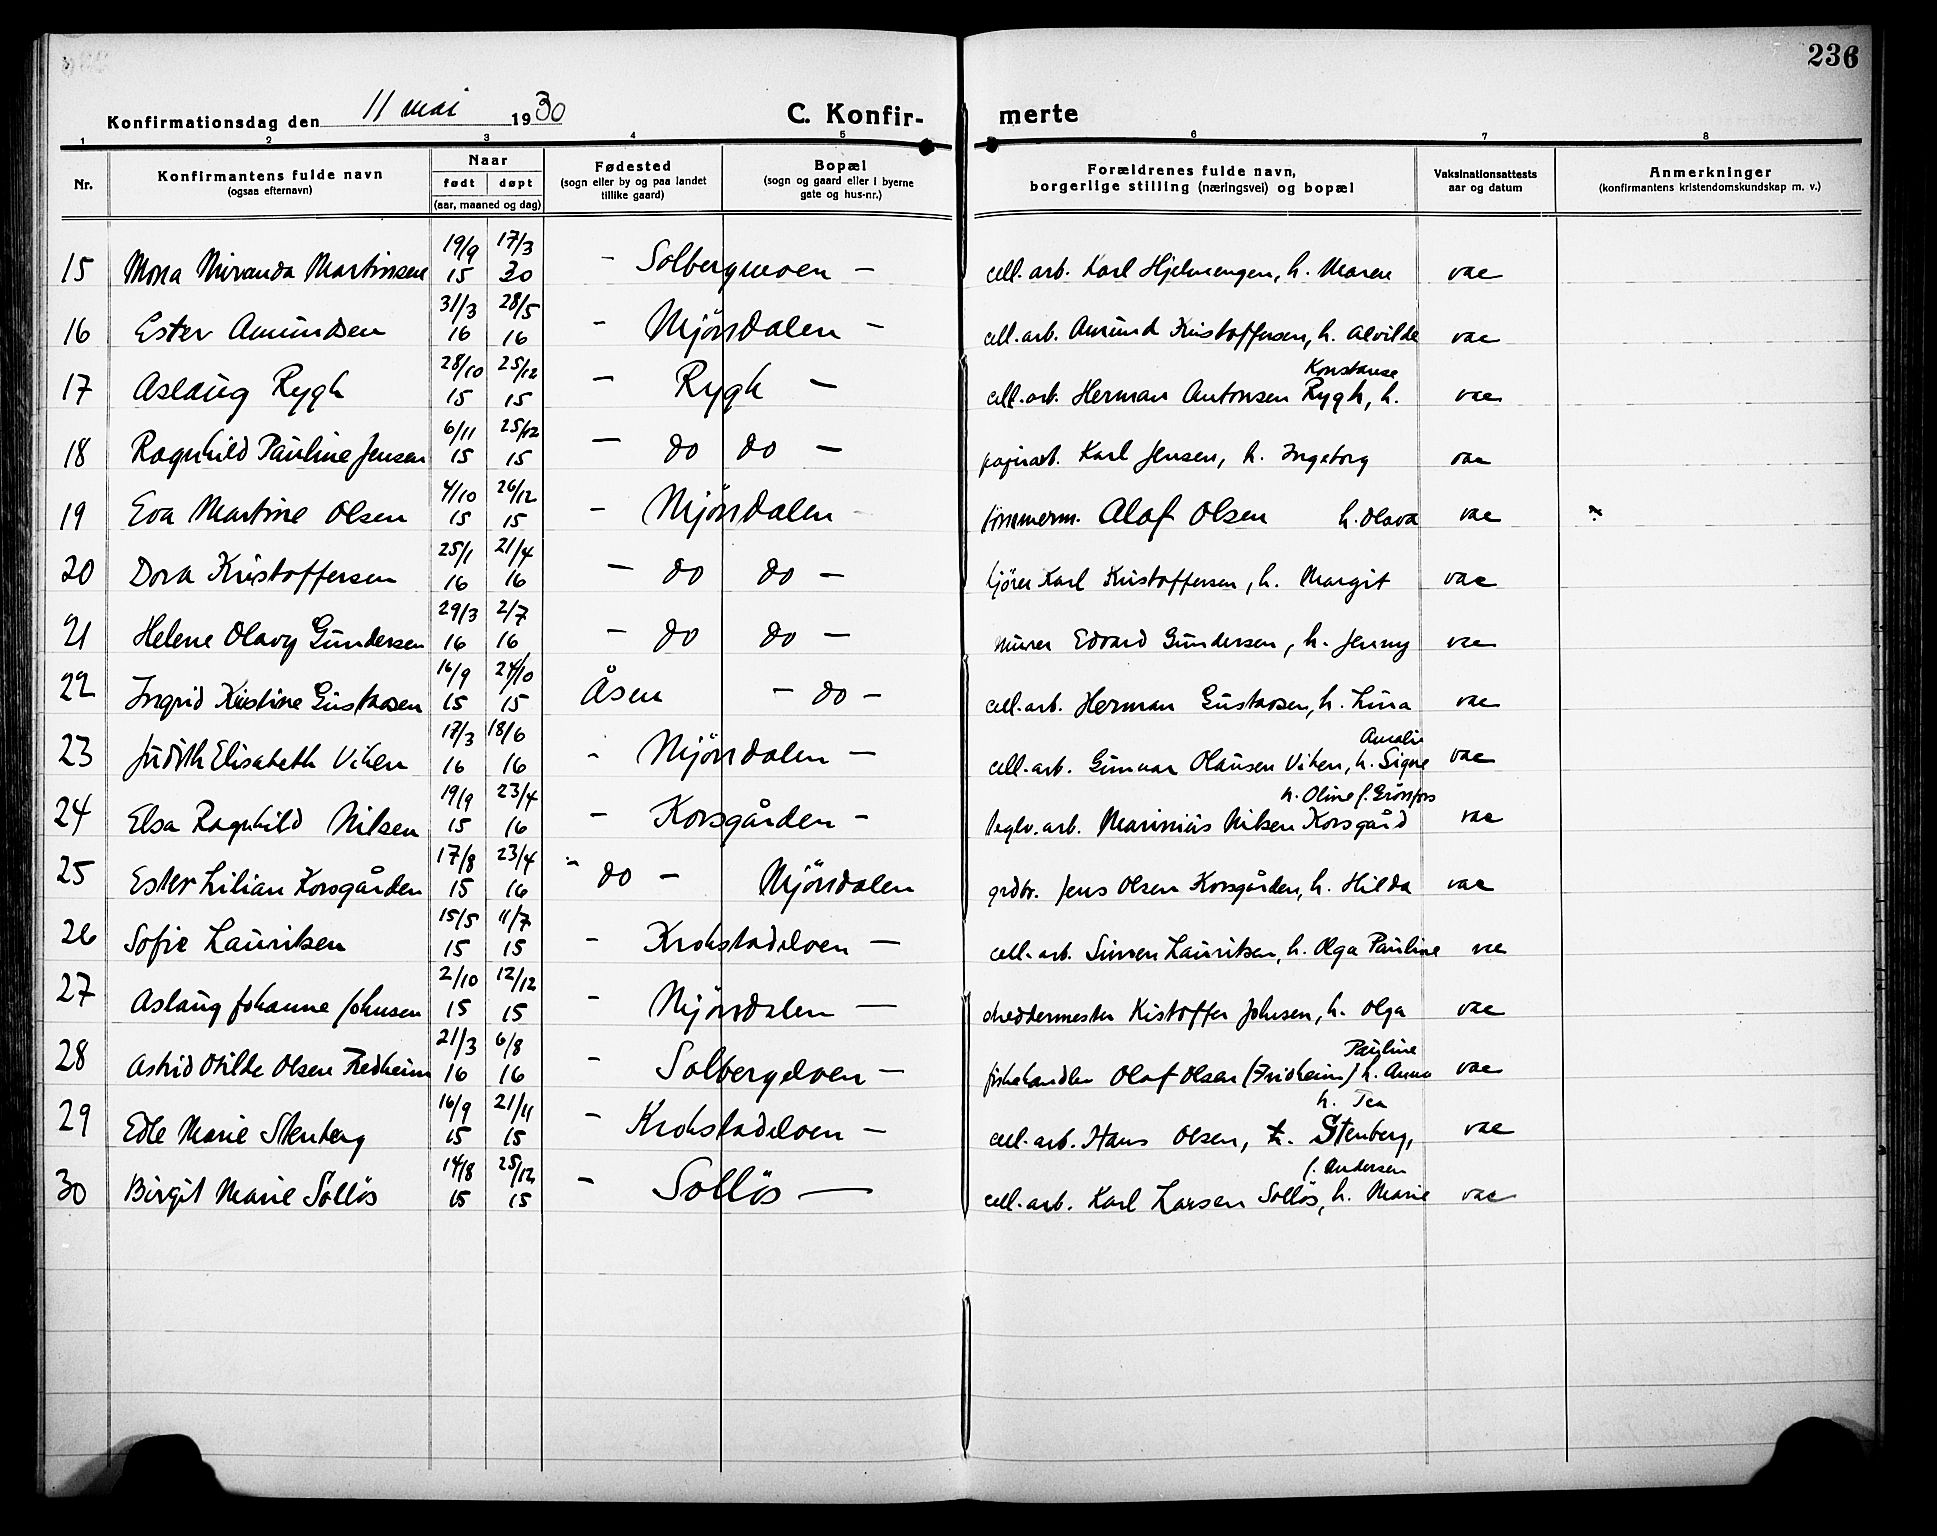 236
Konfirmationsdag den 11 mai 1930
C. Konfir- merte
1 2 3 4 5 6 7 8
Nr. Konfirmantens fulde navn (ogsaa efternavn) Naar født døpt (aar, maaned og dag) Fødested (sogn eller by og paa landet tillike gaard) Bopæl (sogn og gaard eller i byerne gate og hus-nr.) Forældrenes fulde navn, borgerlige stilling (næringsvei) og bopæl Vaksinationsattests aar og datum Anmerkninger (konfirmantens kristendomskundskap m. v.)
15 Mona Miranda Martinsen 19/9 15 17/3 30 - Solbergmoen - cell. arb. Karl Hjelmengen, h. Maren vac
16 Ester Amundsen 31/3 16 28/5 16 - Mjöndalen - cell. arb. Amund Kristoffersen, h. Alvilde vac
17 Aslaug Rygh 28/10 15 25/12 15 - Rygh - cell. arb. Herman Antonsen Rygh, h. Konstanse vac
18 Ragnhild Pauline Jensen 6/11 15 25/12 15 - do do - papirarb. Karl Jensen, h. Ingeborg vac
19 Eva Martine Olsen 4/10 15 26/12 15 - Mjöndalen - tömmerm. Alaf Olsen h. Olava vac
20 Dora Kristoffersen 25/1 16 21/4 16 - do do - kjörer Karl Kristoffersen, h. Margit vac
21 Helene Olavy Gundersen 29/3 16 2/7 16 - do do - murer Edvard Gundersen, h. Jenny vac
22 Ingrid Kristine Gustavsen 16/9 15 24/10 15 Åsen - do - cell. arb. Herman Gustavsen, h. Lina vac
23 Judith Elisabeth Viken 17/3 16 18/6 16 - Mjöndalen - cell. arb. Gunnar Olausen Viken, h. Signe Amalie vac
24 Elsa Ragnhild Nilsen 19/9 15 23/4 16 - Korsgården - teglv. arb. Marinius Nilsen Korsgård h. Oline f. Grösfors vac
25 Ester Lilian Korsgården 17/8 15 23/4 16 - do - Mjöndalen grdbr. Jens Olsen Korsgården, h. Hilda vac
26 Sofie Lauritsen 15/5 15 11/7 15 - Krokstadelven - cell. arb. Simen Lauritsen, h. Olga Pauline vac
27 Aslaug Johanne Johnsen 2/10 15 12/12 15 - Mjöndalen - Kistoffer Johnsen, h. Olga vac
28 Astrid Otilde Olsen Fredheim 21/3 16 6/8 16 - Solbergelven - fiskehandler Olaf Olsen (Fridheim) h. Anna Pauline vac
29 Edle Marie Stenberg 16/9 15 21/11 15 - Krokstadelven - cell. arb. Hans Olsen, h. Stenberg, h. Tea vac
30 Birgit Marie Sollös 14/8 15 25/12 15 - Sollös - cell. arb. Karl Larsen Sollös, h. Marie f. Andersen vac